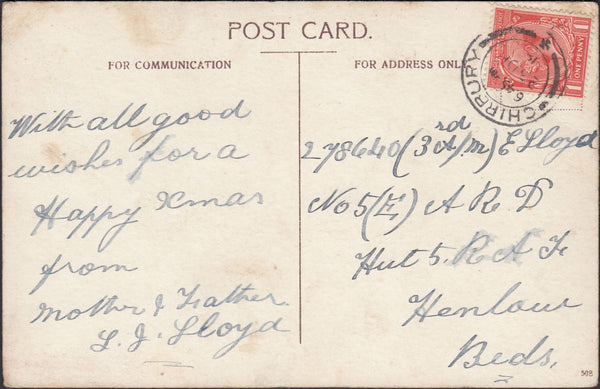 POST CARD.
FOR COMMUNICATION
FOR ADDRESS ONLY
1 ONE PENNY 1
CHIRBURY
With all good
wishes for a
Happy Xmas
from
Mother & Father.
L. J. Lloyd
278640 (3rd A/M) E Lloyd
No 5 (E) A R D
Hut 5. R A F
Henlow
Beds.
50B